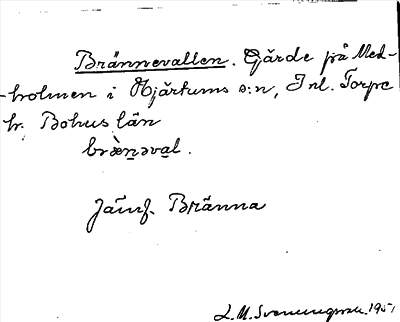 Brännevallen. Gärde på Med-
-holmen i Hjärtums s:n, Inl. Torpe
hr. Bohus län
bræ̀nəval.
Jämf. Bränna
L.M. Svenungsson. 1951